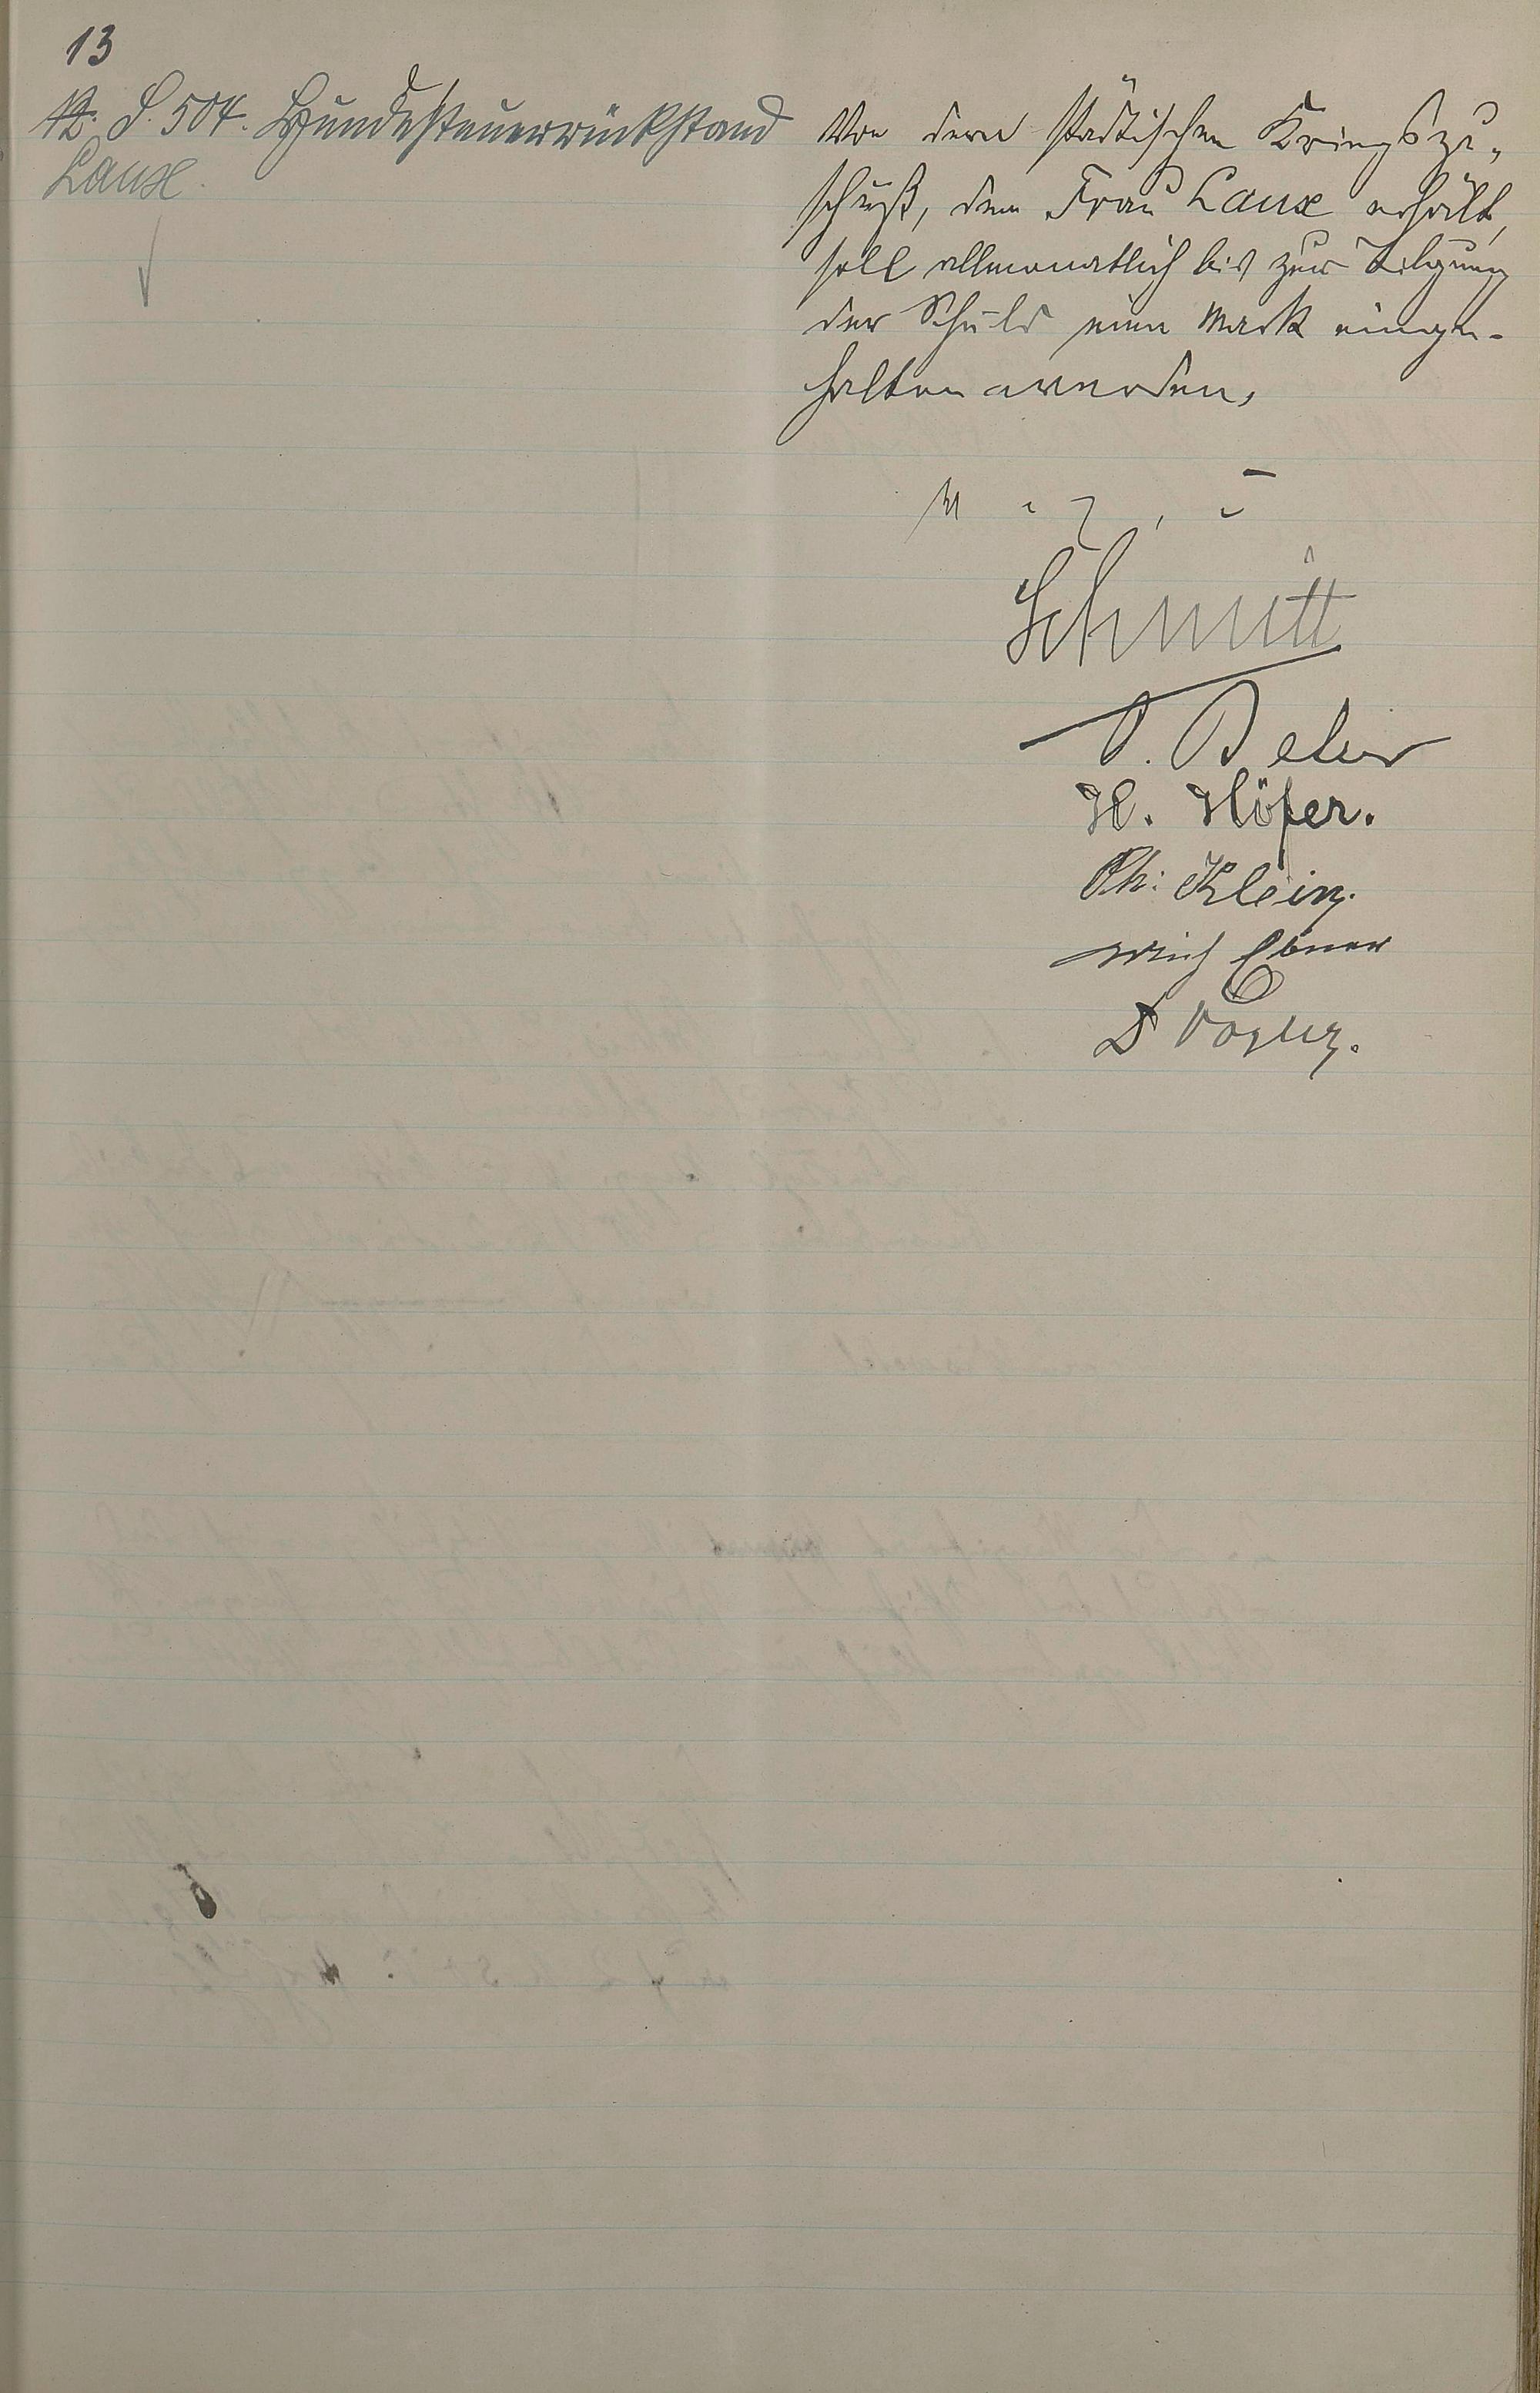 13
St. S. 504. Hundesteuerrückstand
Laux.
Von dem städtischen Kriegszu-
schuß, den Frau Laux erhält,
soll allmonatlich bis zur Tilgung
der Schuld eine Mark einge-
halten werden.
Schmitt
H. Höfer.
Ph: Klein.